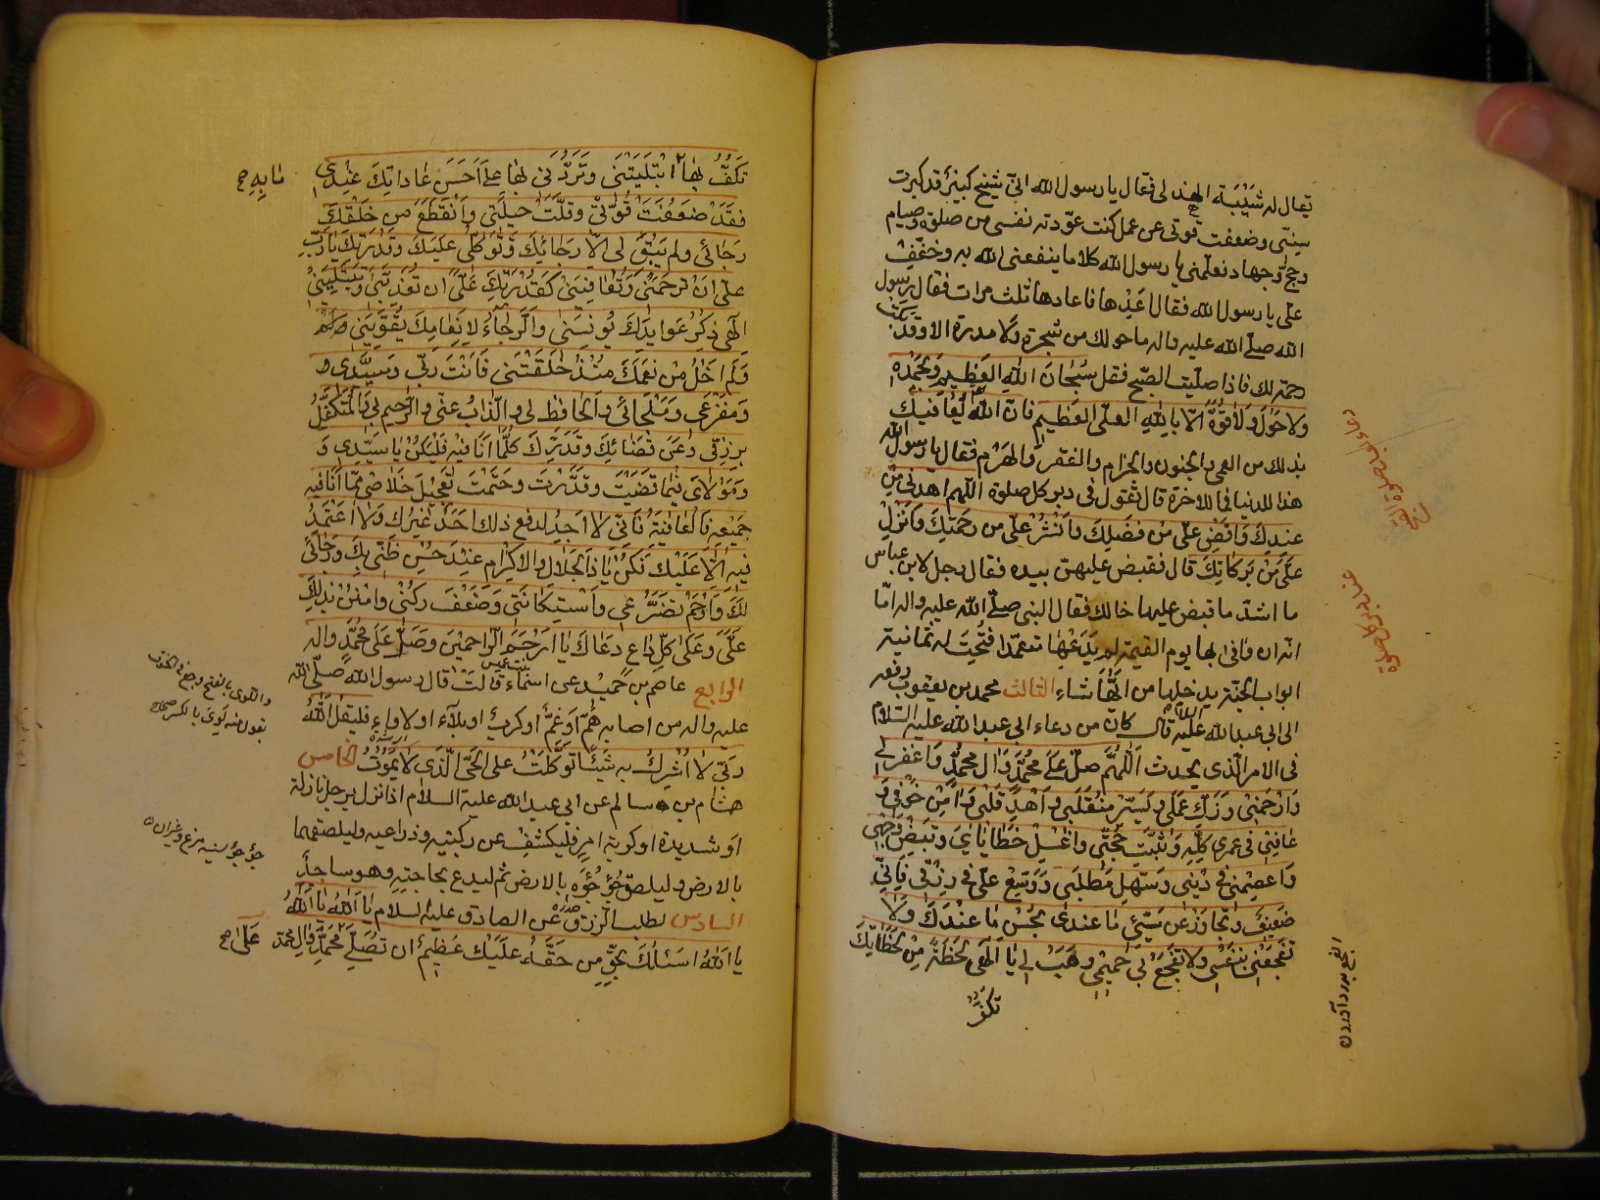 يقال له شيبة الهذلى فقال يا رسول الله انى شيخ كبير قد كبرت
سنى وضعفت قوتى عن عمل كنت عودته نفسى من صلوة وصيام
وحج وجهاد فعلمنى يا رسول الله كلاما ينفعنى الله به وخفف
على يا رسول الله فقال اعدها فاعادها ثلث مرات فقال رسول
الله صلى الله عليه واله ما حولك من شجرة ولا مدرة الا وقد بكت
رحمة لك فاذا صليت الصبح فقل سُبْحانَ اللهِ العَظيمِ وَبِحَمْدِهِ
وَلا حَوْلَ وَلا قُوَّةَ الّا بِاللهِ العَلىِّ العَظيمِ فان الله يعافيك
بذلك من العمى والجنون والجذام والفقر والهرم فقال يا رسول الله
هذا للدنيا فما للاخرة قال تقول فى دبر كل صلوة اللهم اهدنى من
عندك وافض على من فضلك وانشر على من رحمتك وانزل
على من بركاتك قال فقبض عليهن بيده فقال رجل لابن عباس
ما اشد ما قبض عليها خالك فقال النبى صلى الله عليه واله اما
انه ان وافى بها يوم القيمة لم يدعها متعمدا فتحت له ثمانية
ابواب الجنة يدخلها من ايها شاء الثالث محمد بن يعقوب رفعه
الى ابى عبد الله عليه السلام قال كان من دعاء ابى عبد الله عليه السلام
فى الامر الذى يحدث اللهم صل على محمد وال محمد واغفر لى
وارحمنى وزك عملى ويسر منقلبى واهد قلبى وامن خوفى و
عافنى فى عمرى كله وثبت حجتى واغسل خطاياى وبيض وجهى
واعصمنى فى دينى وسهل مطلبى ووسع على فى رزقى فانى
ضعيف وتجاوز عن سيئ ما عندى بحسن ما عندك ولا
تفجعنى بنفسى ولا تفجع بى حميمى وهب لى يا الهى لحظة من لحظاتك
تكشف
دعاء بعد صلوة الصبح
عند دبر كل صلوة
تكف بها ما ابتليتنى وتردنى بها على احسن عاداتك عندى
ما به ح
فقد ضعفت قوتى وقلت حيلتى وانقطع من خلقك
رجائى ولم يبق لى الا رجائك وتوكلى عليك وقدرتك يا رب
على ان ترحمنى وتعافينى كقدرتك على ان تعذبنى وتبتلينى
الهى ذكر عوايدك يونسنى والرجاء لانعامك يقوينى
ولم اخل من نعمك منذ خلقتنى فانت ربى وسيدى و
ومفزعى وملجائى والحافظ لى والذاب عنى والرحيم بى والمتكفل
برزقى وعن قضائك وقدرتك كلما انا فيه فليكن يا سيدى و
ومولاى فيما قضيت وقدرت وحتمت تعجيل خلاصى مما انا فيه
جميعه والعافية فانى لا اجد لدفع ذلك احدا غيرك ولا اعتمد
فيه الا عليك فكن يا ذا الجلال والاكرام عند حسن ظنى بك ورجائى
لك وارحم تضرعى واستكانتى وضعف ركنى وامنن بذلك
على وعلى كل داع دعاك يا ارحم الراحمين وصل على محمد واله
الرابع عاصم بن حميد عن اسماء بنت عميس قالت قال رسول الله صلى الله
عليه واله من اصابه هم او غم او كرب او بلاء او لاواء فليقل الله
ربى لا اشرك به شيئا توكلت على الحى الذى لا يموت الخامس
هشام بن سالم عن ابى عبد الله عليه السلام اذا نزل برجل نازلة
او شديدة او كربة امر فليكشف عن ركبتيه وذراعيه وليلصقهما
بالارض وليلصق جؤجؤه بالارض ثم ليدع بحاجته وهو ساجد
السادس لطلب الرزق عن الصادق عليه السلام يا الله يا الله
يا الله اسئلك بحق من حقه عليك عظيم ان تصلى محمد وال محمد
على ح